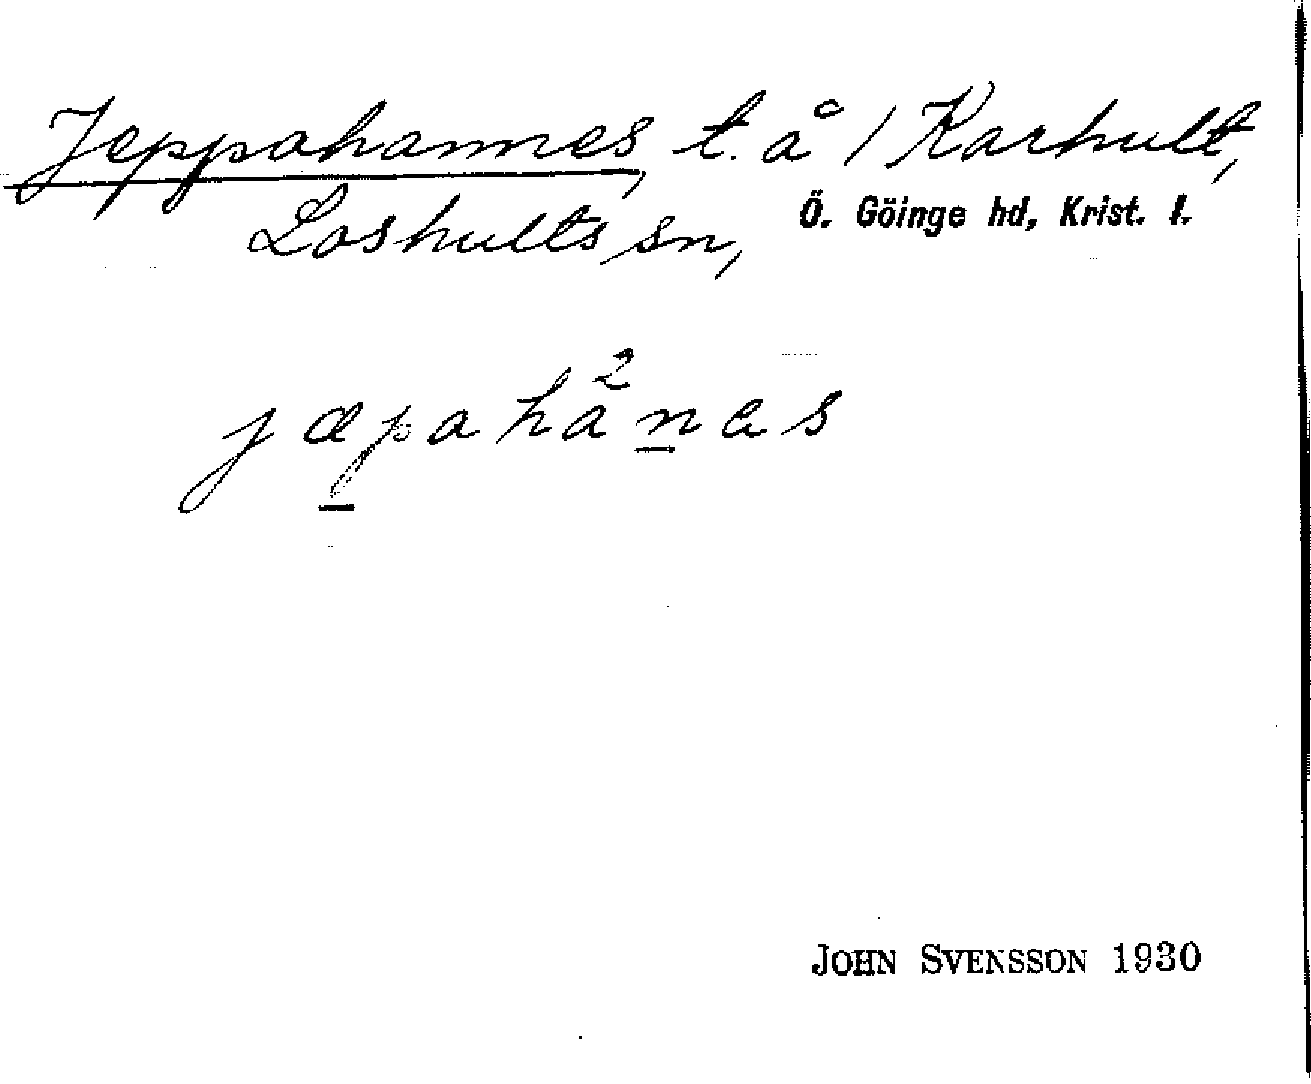 Jeppahannes, t. å / Karhult,
Loshults sn, Ö. Göinge hd, Krist. l.
jæpaha²nas
JOHN SVENSSON 1930